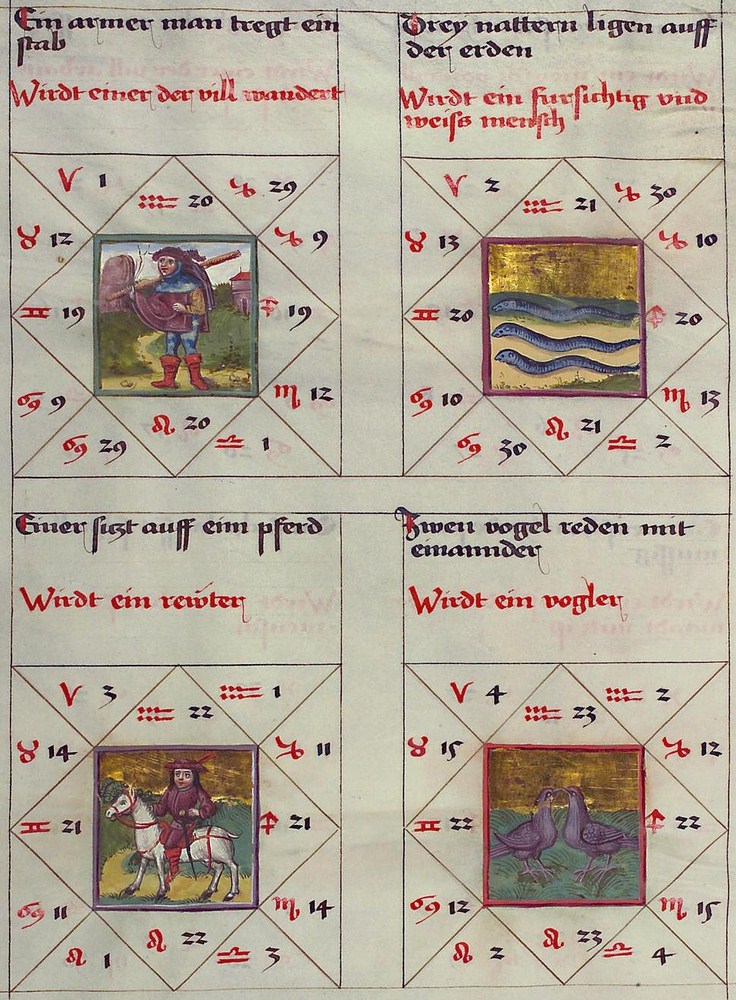 Ein armer man tregt ein
stab
Wirdt einer der vill wandert
♈ 1
♒ 20
♑ 29
♉ 12
♑ 9
♊ 19
♐ 19
♋ 9
♏ 12
♋ 29
♌ 20
♎ 1
Drey nattern ligen auff
der erden
Wirdt ein fursichtig vnd
weiss mensch
♈ 2
♒ 21
♑ 30
♉ 13
♑ 10
♊ 20
♐ 20
♋ 10
♏ 13
♋ 30
♌ 21
♎ 2
Einer sizt auff eim pferd
Wirdt ein rewter
♈ 3
♒ 22
♒ 1
♉ 14
♑ 11
♊ 21
♐ 21
♋ 11
♏ 14
♌ 1
♌ 22
♎ 3
Zwen vogel reden mit
einannder
Wirdt ein vogler
♈ 4
♒ 23
♒ 2
♉ 15
♑ 12
♊ 22
♐ 22
♋ 12
♏ 15
♌ 2
♌ 23
♎ 4